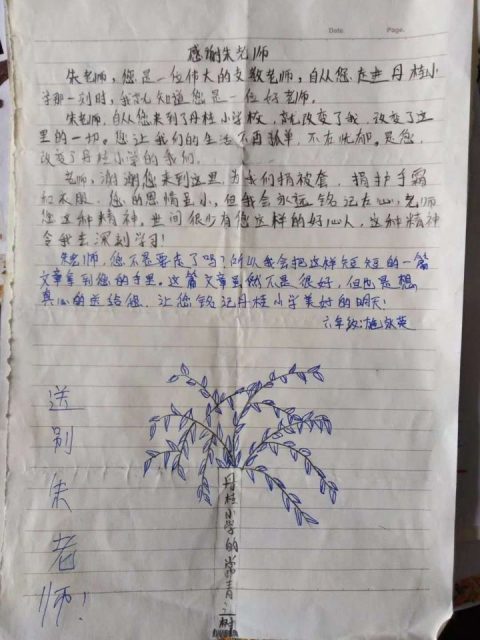 Date.
Page.
感谢朱老师
朱老师，您是一位伟大的支教老师，自从您走进丹桂小
学那一刻时，我就知道您是一位好老师。
朱老师，自从您来到了丹桂小学校，就改变了我，改变了这
里的一切。您让我们的生活不再孤单，不在忧郁。是您，
改变了丹桂小学的我们。
老师，谢谢您来到这里，为我们捐被套，捐护手霜
和衣服，您的恩情虽小，但我会永远铭记在心，老师
您这种精神，世间很少有您这样的好心人，这种精神
令我去深刻学习！
朱老师，您不是要走了吗？所以我会把这样短短的一篇
文章拿到您的手里。这篇文章虽然不是很好，但也是想
真心的送给您，让您铭记丹桂小学美好的明天！
六年级：施
送别朱老师！
丹桂小学的常青之树